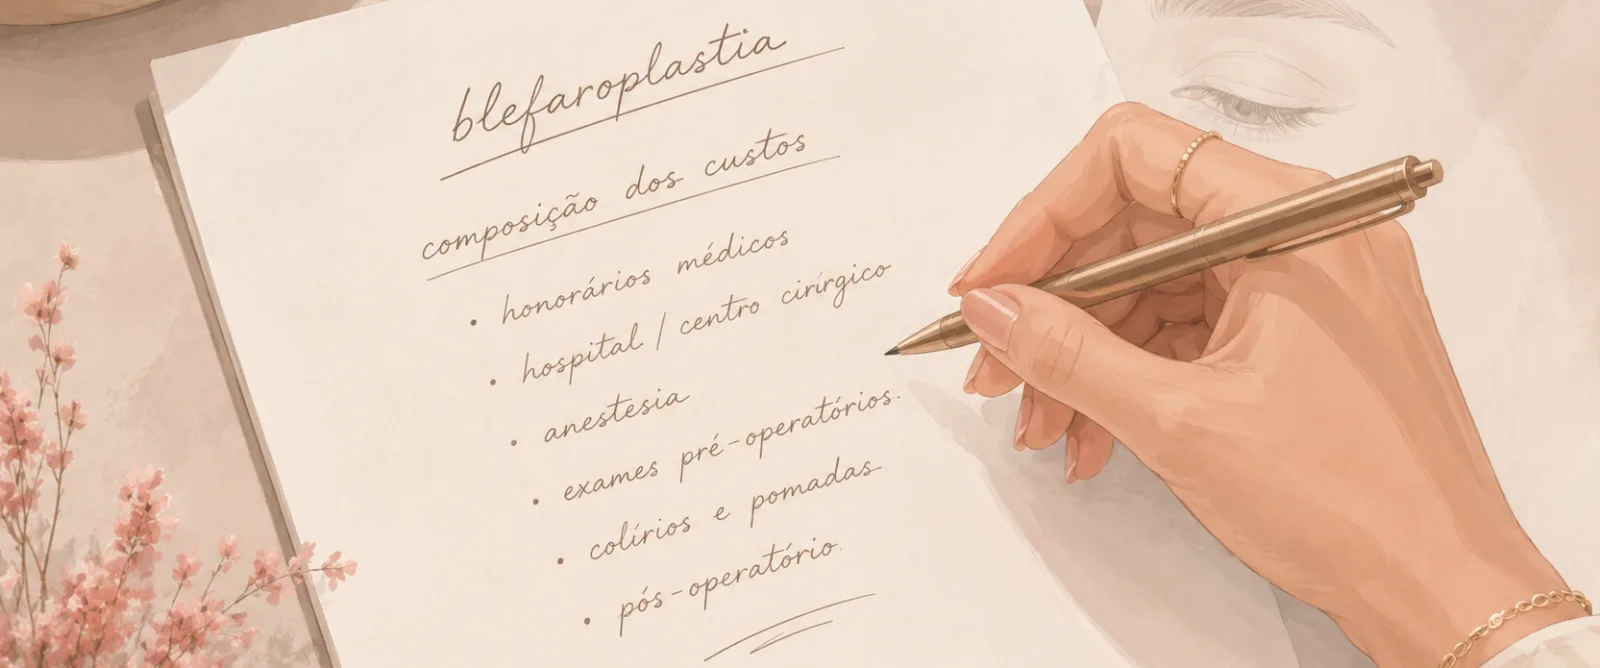 blefaroplastia
composição dos custos
• honorários médicos
• hospital / centro cirírgico
• anestesia
• exames pré-operatórios.
• colírios e pomadas
• pós-operatório